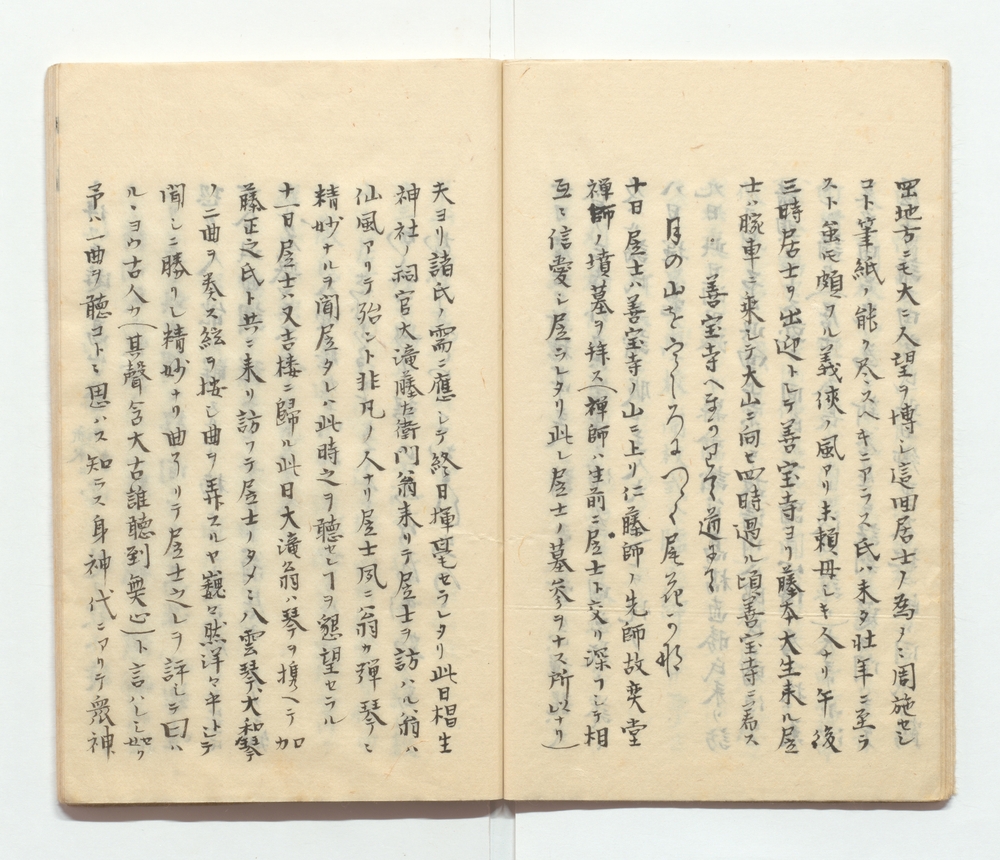 四地方ニモ大ニ人望ヲ博シ這回居士ノ為メニ周施セシ
コト筆紙ノ能ク尽スヘキニアラス氏ハ未タ壮年ニ至ラ
スト虽モ頗フル義侠ノ風アリ末頼母シキ人ナリ午後
三時居士ヲ出迎トシテ善宝寺ヨリ藤本大生来ル居
士ハ腕車ニ乗シテ大山ニ向セ四時過ル頃善宝寺ニ着ス
善宝寺へまかりて道すから
月の山をうしろにつゝく尾花かな
十日居士ハ善宝寺ノ山ニ上リ仁藤師ノ先師故奕堂
禅師ノ墳墓ヲ拝ス(禅師ハ生前ニ居士ト交リ深フシテ相
互ニ信愛シ居ラレタリ此レ居士ノ墓参ヲナス所以ナリ)
夫ヨリ諸氏ノ需ニ應シテ終日揮毫セラレタリ此日椙生
神社ノ祠官大滝藤左衛門翁来リテ居士ヲ訪ハル翁ハ
仙風アリテ殆ント非凡ノ人ナリ居士夙ニ翁カ弾琴ニ
精妙ナルヲ聞居タレハ此時之ヲ聴セシヿヲ懇望セラル
十一日居士ハ又吉楼ニ歸ル此日大滝翁ハ琴ヲ携ヘテ加
藤正之氏ト共ニ来リ訪フテ居士ノタメニ八雲琴大和琴
ノ二曲ヲ奏ス絃ヲ按シ曲ヲ弄スルヤ巍々然洋々乎トシテ
聞シニ勝リシ精妙ナリ曲了リテ居士之レヲ評シテ曰ハ
ルヽヨウ古人カ(其聲含大古誰聴到無心)ト言ハレシ如ク
予ハ一曲ヲ聴コトニ思ハス知ラス身神代ニアリテ衆神